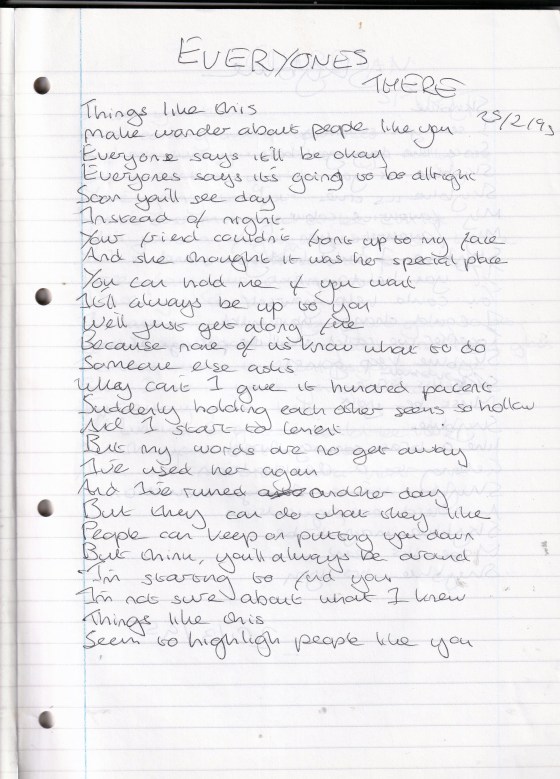 EVERYONES
THERE
25/2/93
Things like this
Make wonder about people like you
Everyone says it'll be okay
Everyones says it's going to be allright
Soon you'll see day
Instead of night
Your friend couldn't front up to my face
And she thought it was her special place
You can hold me if you want
It'll always be up to you
We'll just get along fine
Because none of us know what to do
Someone else asks
Why cant I give it hundred pacent
Suddenly holding each other seems so hollow
And I start to lement
But my words are no get away
I've used her again
And I've ruined another day
But they can do what they like
People can keep on putting you down
But think, you'll always be around
I'm starting to find you
I'm not sure about what I knew
Things like this
Seem to highligh people like you